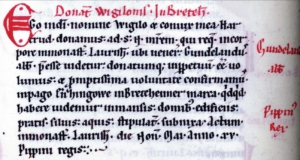 Donat Wigilonis. In Breteh.
Ego in di nomine Wigilo et coniux mea Har
trud. donamus ad s. N. mrem. qui req. in cor
pore in monast. Laurish. ubi uener. Gundelandus
abb. pesse uidetur. donatumq; ee uo
lum', et pmptissima uoluntate confirmam', in
pago in Bretheimer marca. qdqd
habere uidemur in mansis. domib; edificiis.
pratis. siluis. aquis. stipulat subnixa. Actum in
monast. Laurish. die Non Mar. anno XV
Pippini regis.
Gundelan
abb.
Pippin'
Rex